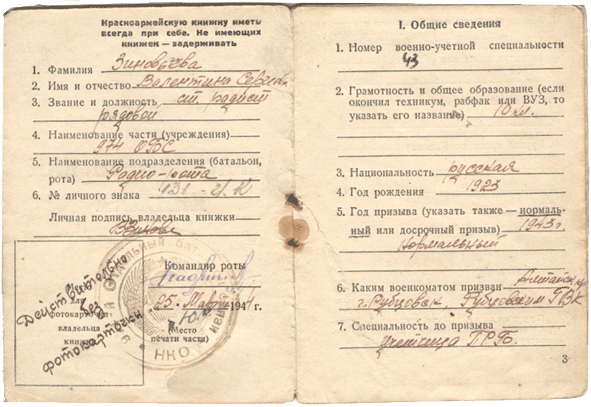 Красноармейскую книжку иметь
всегда при себе. Не имеющих
книжек — задерживать
1. Фамилия Зиновьева
2. Имя и отчество Валентина
3. Звание и должность ст. радист
рядовой
4. Наименование части (учреждения)
974 ОБС
5. Наименование подразделения (батальон,
рота) Радио-рота
6. № личного знака
Личная подпись владельца книжки
Действительно
без
фотокарточки
для
фотокарточки
владельца
книжки
Командир роты
25 Марта 194 г.
(Место
печати части)
НКО
I. Общие сведения
1. Номер военно-учетной специальности
43
2. Грамотность и общее образование (если
окончил техникум, рабфак или ВУЗ, то
указать его название) 10 кл.
3. Национальность русская
4. Год рождения 1923
5. Год призыва (указать также — нормаль-
ный или досрочный призыв) 1943 г
нормальный
6. Каким военкоматом призван
г. Рубцовск, Рубцовским ГВК
7. Специальность до призыва
учетчица
3